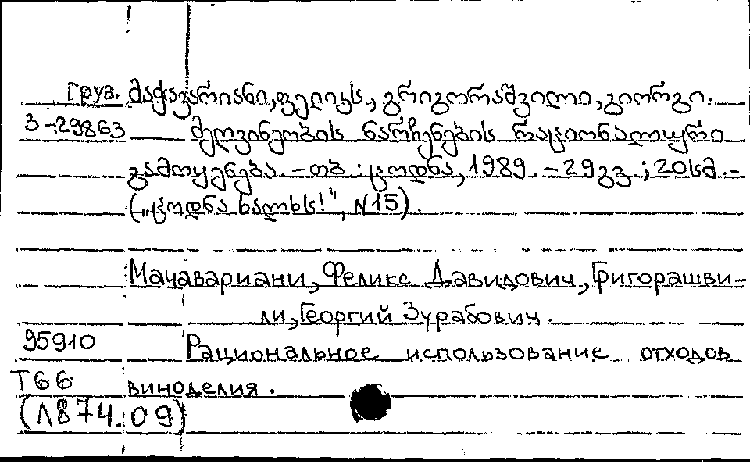 Груз. მაჭავარიანი, ფელიქს., გრიგორაშვილი, გიორგი.
3-29863 მეღვინეობის ნარჩენების რაციონალური
გამოყენება. - თბ : ცოდნა, 1989. - 29 გვ. ; 20 სმ. -
(„ცოდნა ხალხს!", N15).
Мачавариани, Феликс Давидович, Григорашви-
ли, Георгий Зурабович.
95910 Рациональное использование отходов
Т66 виноделия.
(Л874.09)